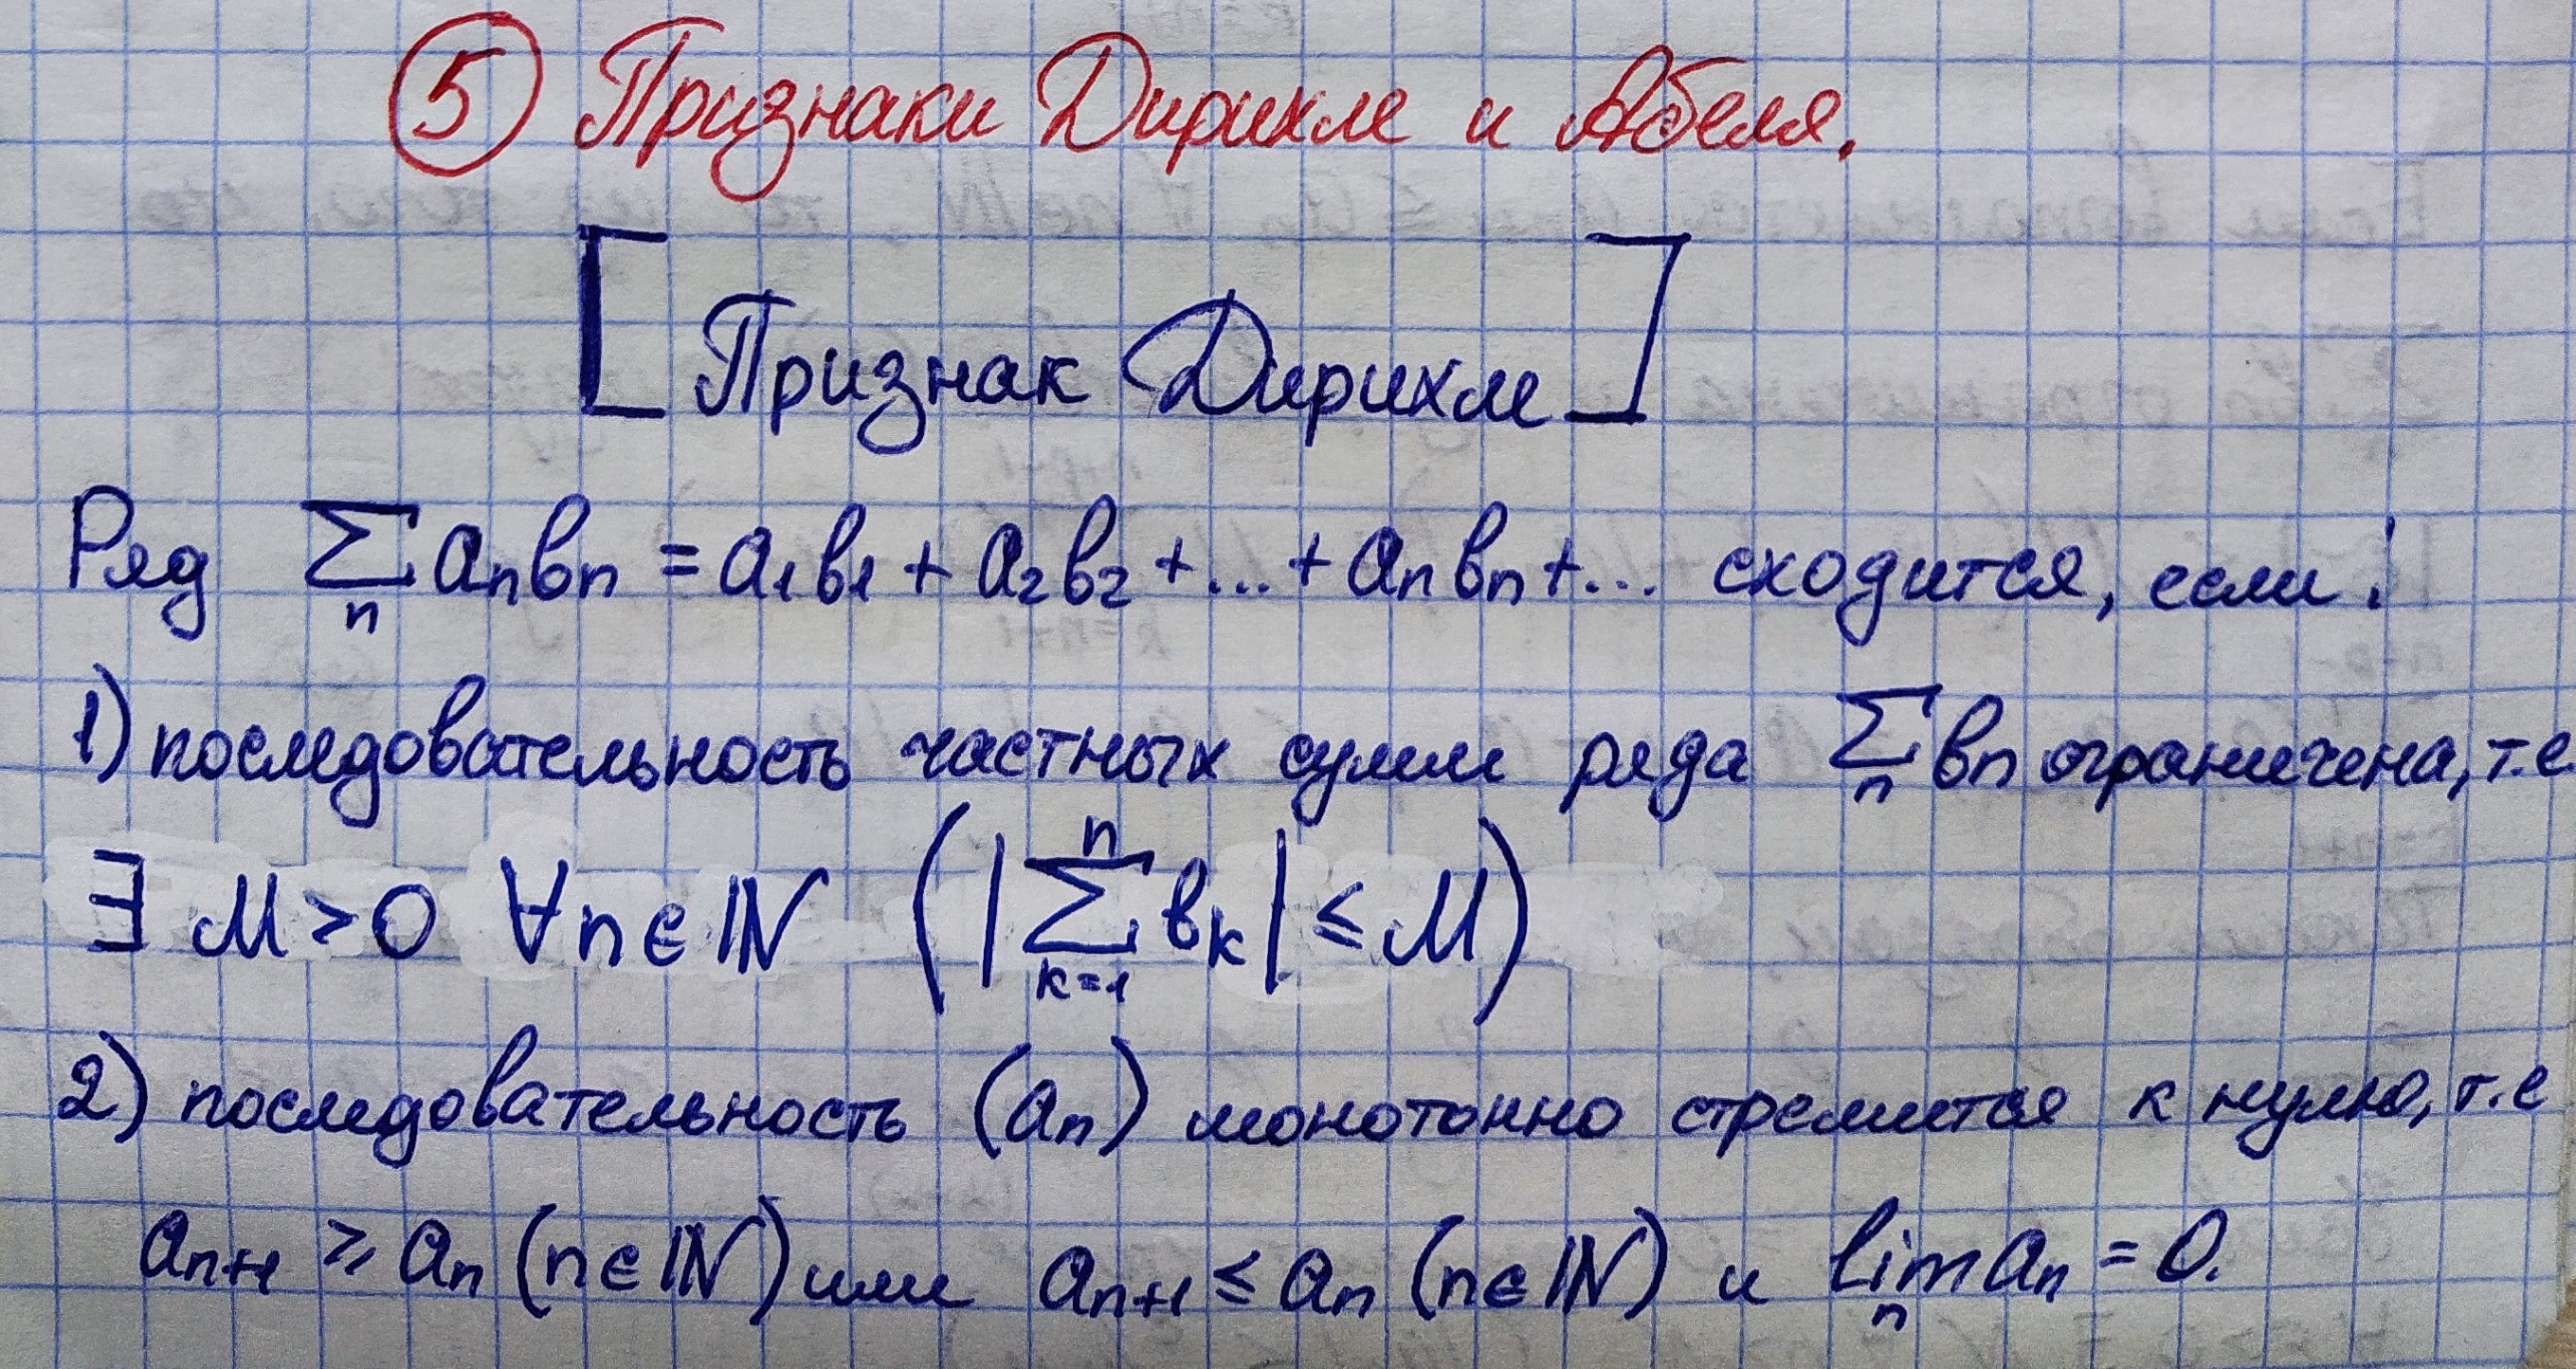 5 Признаки Дирихле и Абеля.
[Признак Дирихле]
Ряд ∑ₙ aₙbₙ = a₁b₁ + a₂b₂ + ... + aₙbₙ + ... сходится, если:
1) последовательность частных сумм ряда ∑ₙ bₙ ограничена, т.е
∃ M > 0 ∀n ∈ ℕ (|∑ₖ₌₁ⁿ bₖ| ≤ M)
2) последовательность (aₙ) монотонно стремится к нулю, т.е
aₙ₊₁ ≥ aₙ (n ∈ ℕ) или aₙ₊₁ ≤ aₙ (n ∈ ℕ) и limₙ aₙ = 0.